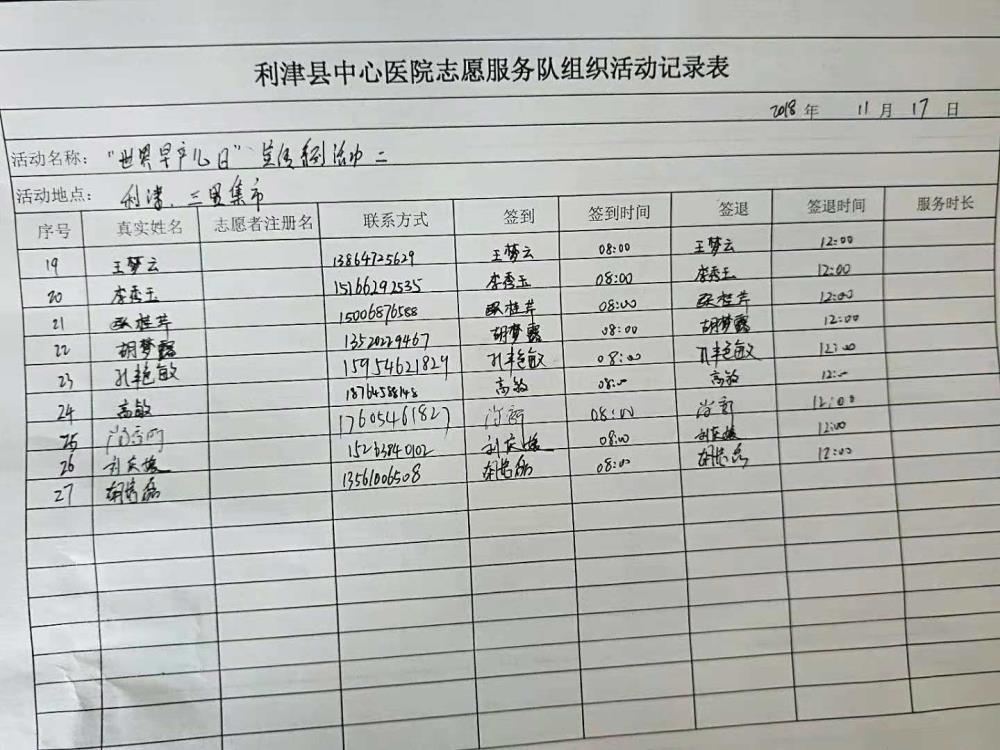 利津县中心医院志愿服务队组织活动记录表
2018年 11月 17日
活动名称："世界早产儿日"宣传系列活动二
活动地点：利津、三里集市
序号 真实姓名 志愿者注册名 联系方式 签到 签到时间 签退 签退时间 服务时长
19 王梦云 13864725629 王梦云 08:00 王梦云 12:00
20 李秀玉 15166292535 李秀玉 08:00 李秀玉 12:00
21 欧桂芹 15006876588 欧桂芹 08:00 欧桂芹 12:00
22 胡梦露 13520229467 胡梦露 08:00 胡梦露 12:00
23 孔艳敏 15954621829 孔艳敏 08:00 孔艳敏 12:00
24 高敏 18764588148 高敏 08:00 高敏 12:00
25 17605461827 08:00 12:00
26 15263840102 08:00 12:00
27 13561006508 08:00 12:00